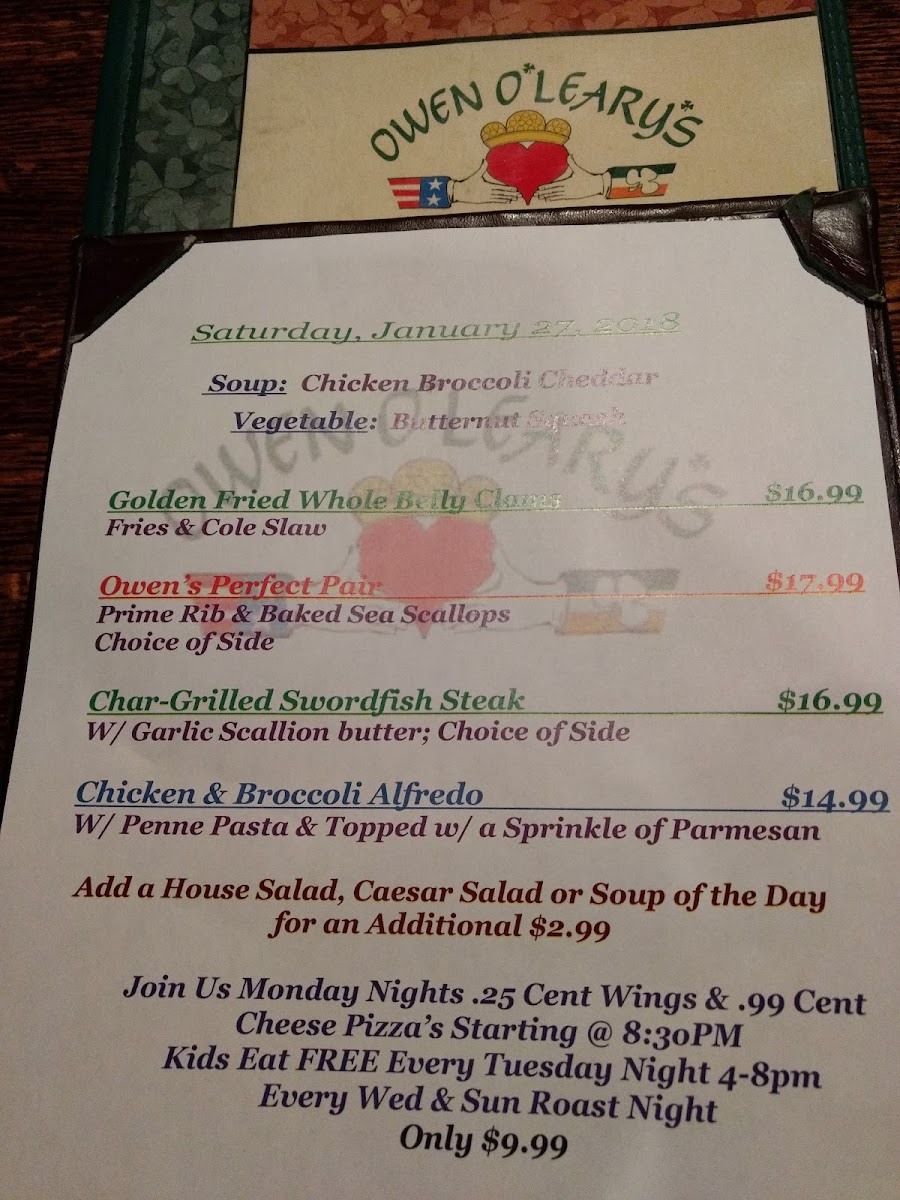 OWEN O'LEARY'S
Saturday, January 27, 2018
Soup: Chicken Broccoli Cheddar
Vegetable: Butternut Squash
OWEN O'LEARY'S
Golden Fried Whole Belly Clams $16.99
Fries & Cole Slaw
Owen's Perfect Pair $17.99
Prime Rib & Baked Sea Scallops
Choice of Side
Char-Grilled Swordfish Steak $16.99
W/ Garlic Scallion butter; Choice of Side
Chicken & Broccoli Alfredo $14.99
W/ Penne Pasta & Topped w/ a Sprinkle of Parmesan
Add a House Salad, Caesar Salad or Soup of the Day
for an Additional $2.99
Join Us Monday Nights .25 Cent Wings & .99 Cent
Cheese Pizza's Starting @ 8:30PM
Kids Eat FREE Every Tuesday Night 4-8pm
Every Wed & Sun Roast Night
Only $9.99